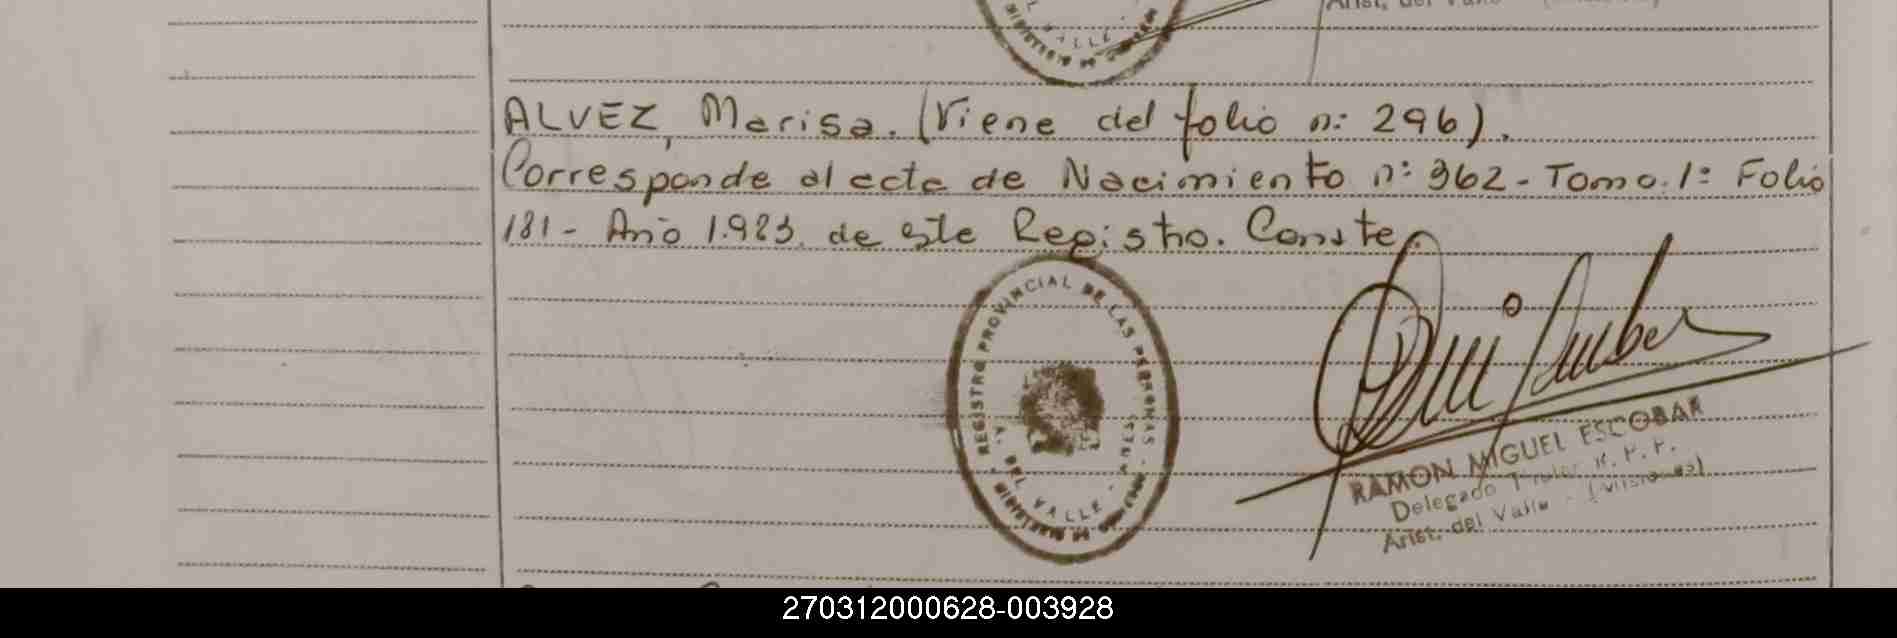 ALVEZ, Marisa. (Viene del folio n: 296).
Corresponde al acta de Nacimiento n: 362 - Tomo. 1º Folio
181 - Año 1.983. de este Registro. Conste.
REGISTRO PROVINCIAL DE LAS PERSONAS
A. DEL VALLE
RAMON MIGUEL ESCOBAR
Delegado Titular R. P. P.
Arist. del Valle - (Misiones)
270312000628-003928